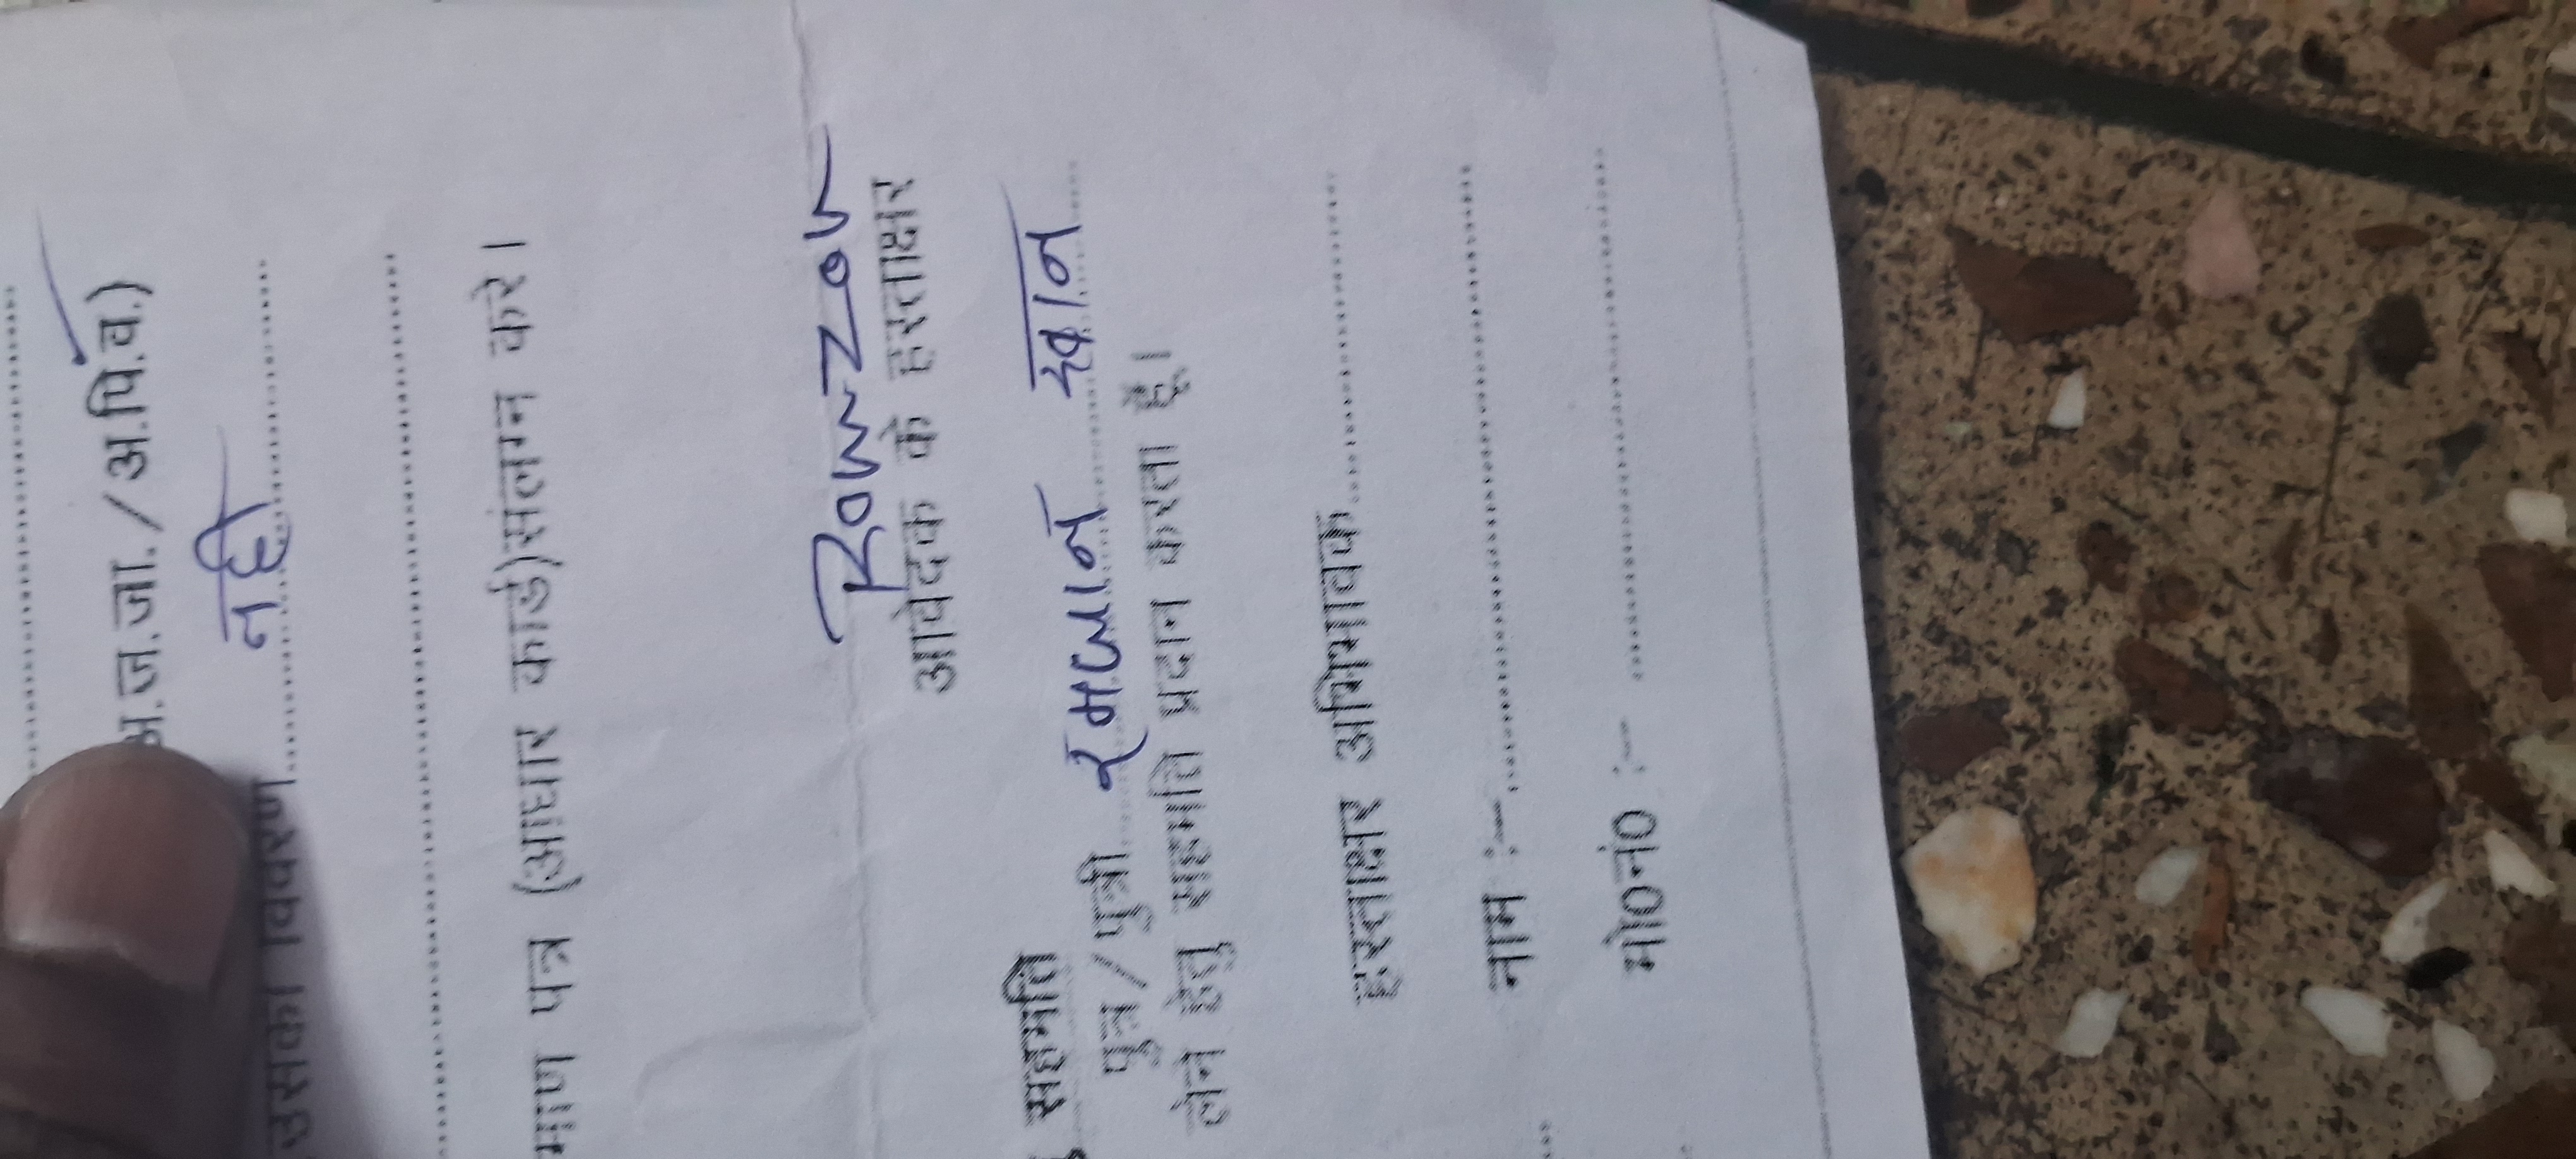 अ.ज.जा. / अ.पि.व.)
उसका विवरण.......नहीं.......
माण पत्र (आधार कार्ड) संलग्न करे।
Ramzan
आवेदक के हस्ताक्षर
सहमति
पुत्र / पुत्री रमजान खान
लेने हेतु सहमति प्रदान करता हूं।
हस्ताक्षर अभिभावक
नाम :–
मो०नं० :–